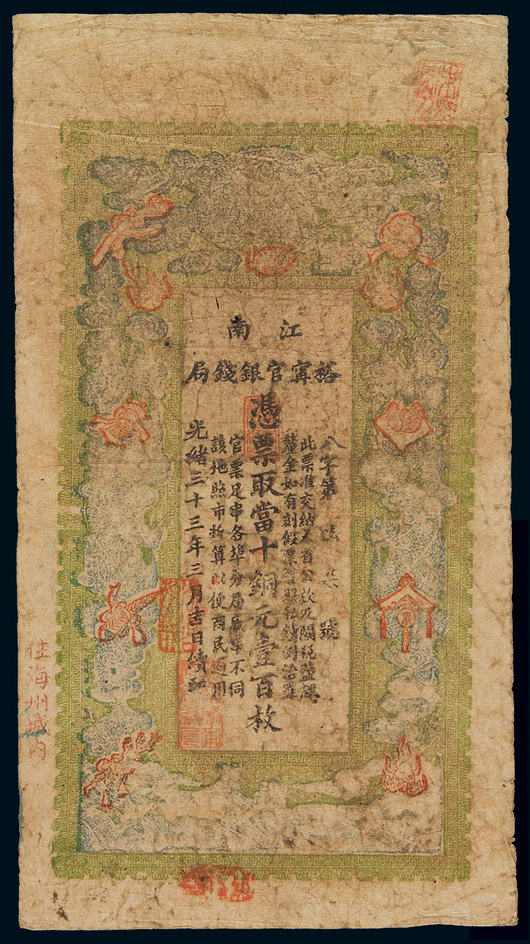 江南
裕寧官銀錢局
八字第 號
此票准交納本省公款及關稅鹽課
釐金如有 假票 照私鑄例治罪
憑票取當十銅元壹百枚
官票足串各埠分局 不同
該地照市折算以便商民通用
光緒三十三年三月吉日續印
住海州城內